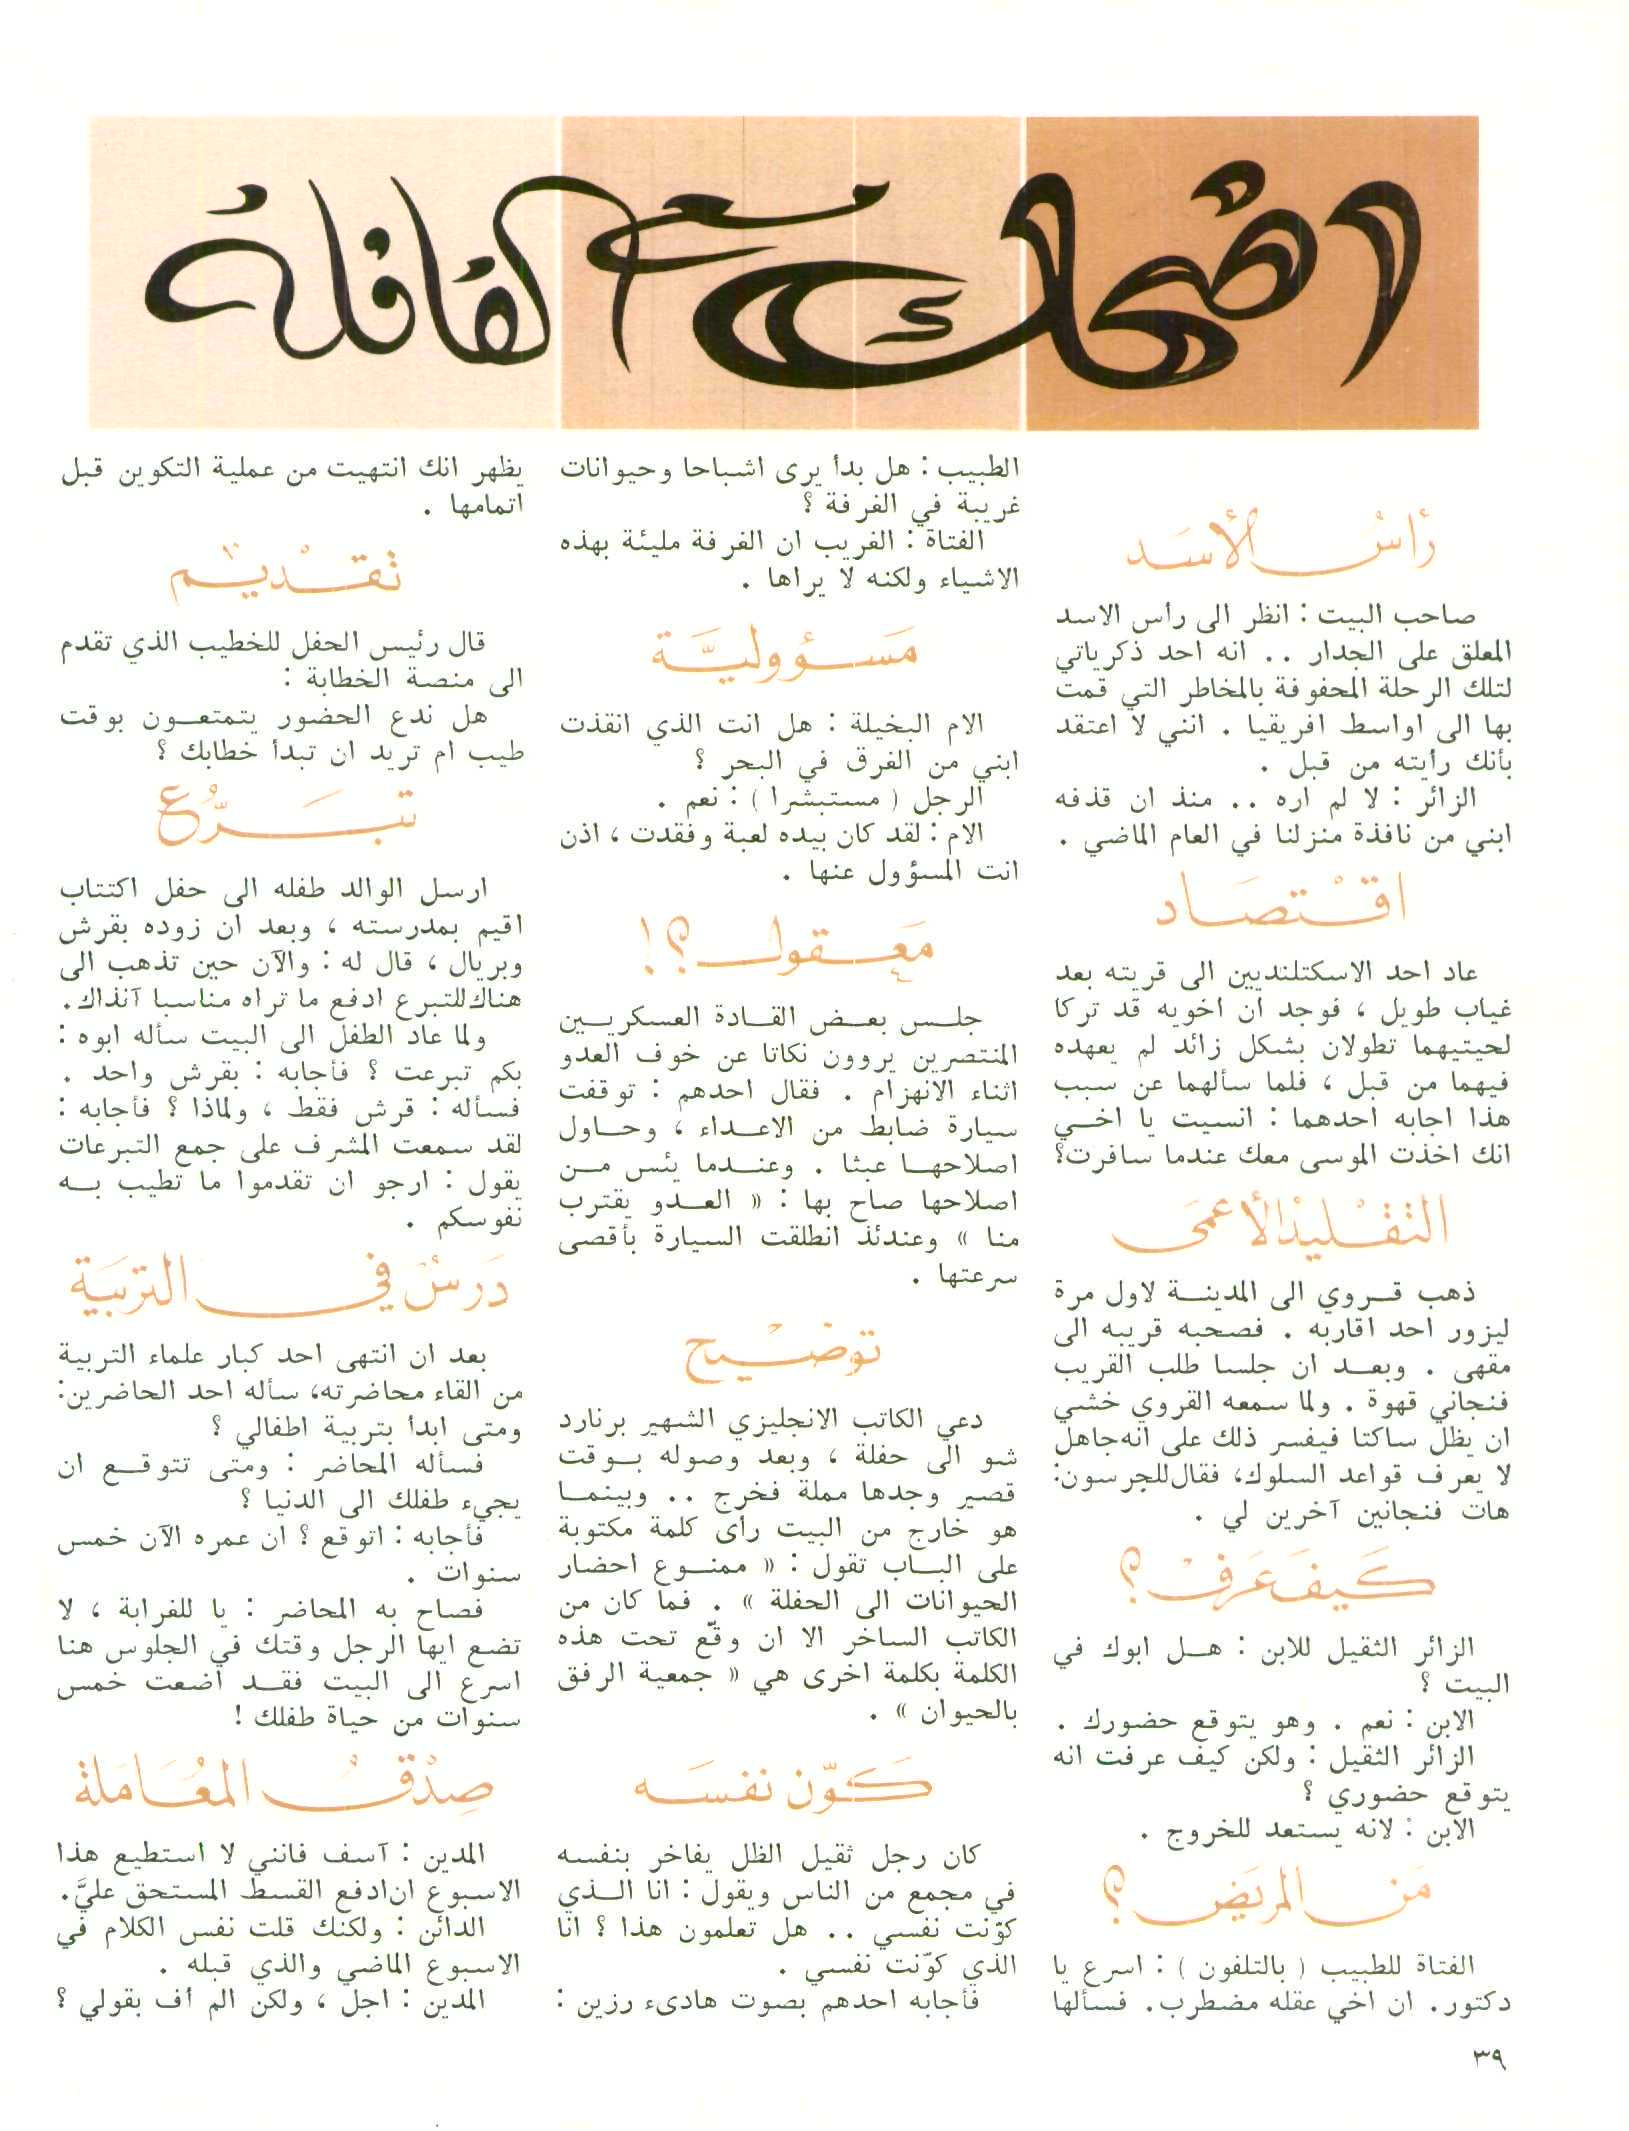 اضحك مع القافلة
رأس الأسد
صاحب البيت : انظر الى رأس الاسد
المعلق على الجدار .. انه احد ذكرياتي
لتلك الرحلة المحفوفة بالمخاطر التي قمت
بها الى اواسط افريقيا . انني لا اعتقد
بأنك رأيته من قبل .
الزائر : لا لم اره .. منذ ان قذفه
ابني من نافذة منزلنا في العام الماضي .
اقتصاد
عاد احد الاسكتلنديين الى قريته بعد
غياب طويل ، فوجد ان اخويه قد تركا
لحيتيهما تطولان بشكل زائد لم يعهده
فيهما من قبل ، فلما سألهما عن سبب
هذا اجابه احدهما : انسيت يا اخي
انك اخذت الموسى معك عندما سافرت؟
التقليد الأعمى
ذهب قروي الى المدينة لاول مرة
ليزور احد اقاربه . فصحبه قريبه الى
مقهى . وبعد ان جلسا طلب القريب
فنجاني قهوة . ولما سمعه القروي خشي
ان يظل ساكتا فيفسر ذلك على انه جاهل
لا يعرف قواعد السلوك، فقال للجرسون:
هات فنجانين آخرين لي .
كيف عرف ؟
الزائر الثقيل للابن : هل ابوك في
البيت ؟
الابن : نعم . وهو يتوقع حضورك .
الزائر الثقيل : ولكن كيف عرفت انه
يتوقع حضوري ؟
الابن : لانه يستعد للخروج .
من المريض ؟
الفتاة للطبيب ( بالتلفون ) : اسرع يا
دكتور. ان اخي عقله مضطرب. فسألها
الطبيب : هل بدأ يرى اشباحا وحيوانات
غريبة في الغرفة ؟
الفتاة : الغريب ان الغرفة مليئة بهذه
الاشياء ولكنه لا يراها .
مَسؤوليَّة
الام البخيلة : هل انت الذي انقذت
ابني من الغرق في البحر ؟
الرجل ( مستبشرا ) : نعم .
الام : لقد كان بيده لعبة وفقدت ، اذن
انت المسؤول عنها .
مَعقول ؟!
جلس بعض القادة العسكريين
المنتصرين يروون نكاتا عن خوف العدو
اثناء الانهزام . فقال احدهم : توقفت
سيارة ضابط من الاعداء ، وحاول
اصلاحها عبثا . وعندما يئس من
اصلاحها صاح بها : « العدو يقترب
منا » وعندئذ انطلقت السيارة بأقصى
سرعتها .
توضيح
دعي الكاتب الانجليزي الشهير برنارد
شو الى حفلة ، وبعد وصوله بوقت
قصير وجدها مملة فخرج .. وبينما
هو خارج من البيت رأى كلمة مكتوبة
على الباب تقول : « ممنوع احضار
الحيوانات الى الحفلة » . فما كان من
الكاتب الساخر الا ان وقّع تحت هذه
الكلمة بكلمة اخرى هي « جمعية الرفق
بالحيوان » .
كوّن نفسَه
كان رجل ثقيل الظل يفاخر بنفسه
في مجمع من الناس ويقول : انا الذي
كوّنت نفسي .. هل تعلمون هذا ؟ انا
الذي كوّنت نفسي .
فأجابه احدهم بصوت هادىء رزين :
يظهر انك انتهيت من عملية التكوين قبل
اتمامها .
تقديم
قال رئيس الحفل للخطيب الذي تقدم
الى منصة الخطابة :
هل ندع الحضور يتمتعون بوقت
طيب ام تريد ان تبدأ خطابك ؟
تبرّع
ارسل الوالد طفله الى حفل اكتتاب
اقيم بمدرسته ، وبعد ان زوده بقرش
وبريال ، قال له : والآن حين تذهب الى
هناك للتبرع ادفع ما تراه مناسبا آنذاك.
ولما عاد الطفل الى البيت سأله ابوه :
بكم تبرعت ؟ فأجابه : بقرش واحد .
فسأله : قرش فقط ، ولماذا ؟ فأجابه :
لقد سمعت المشرف على جمع التبرعات
يقول : ارجو ان تقدموا ما تطيب به
نفوسكم .
دَرسٌ في التربية
بعد ان انتهى احد كبار علماء التربية
من القاء محاضرته، سأله احد الحاضرين:
ومتى ابدأ بتربية اطفالي ؟
فسأله المحاضر : ومتى تتوقع ان
يجيء طفلك الى الدنيا ؟
فأجابه : اتوقع ؟ ان عمره الآن خمس
سنوات .
فصاح به المحاضر : يا للغرابة ، لا
تضع ايها الرجل وقتك في الجلوس هنا
اسرع الى البيت فقد اضعت خمس
سنوات من حياة طفلك !
صِدْق المُعَامَلة
المدين : آسف فانني لا استطيع هذا
الاسبوع ان ادفع القسط المستحق عليَّ.
الدائن : ولكنك قلت نفس الكلام في
الاسبوع الماضي والذي قبله .
المدين : اجل ، ولكن الم أف بقولي ؟
٣٩